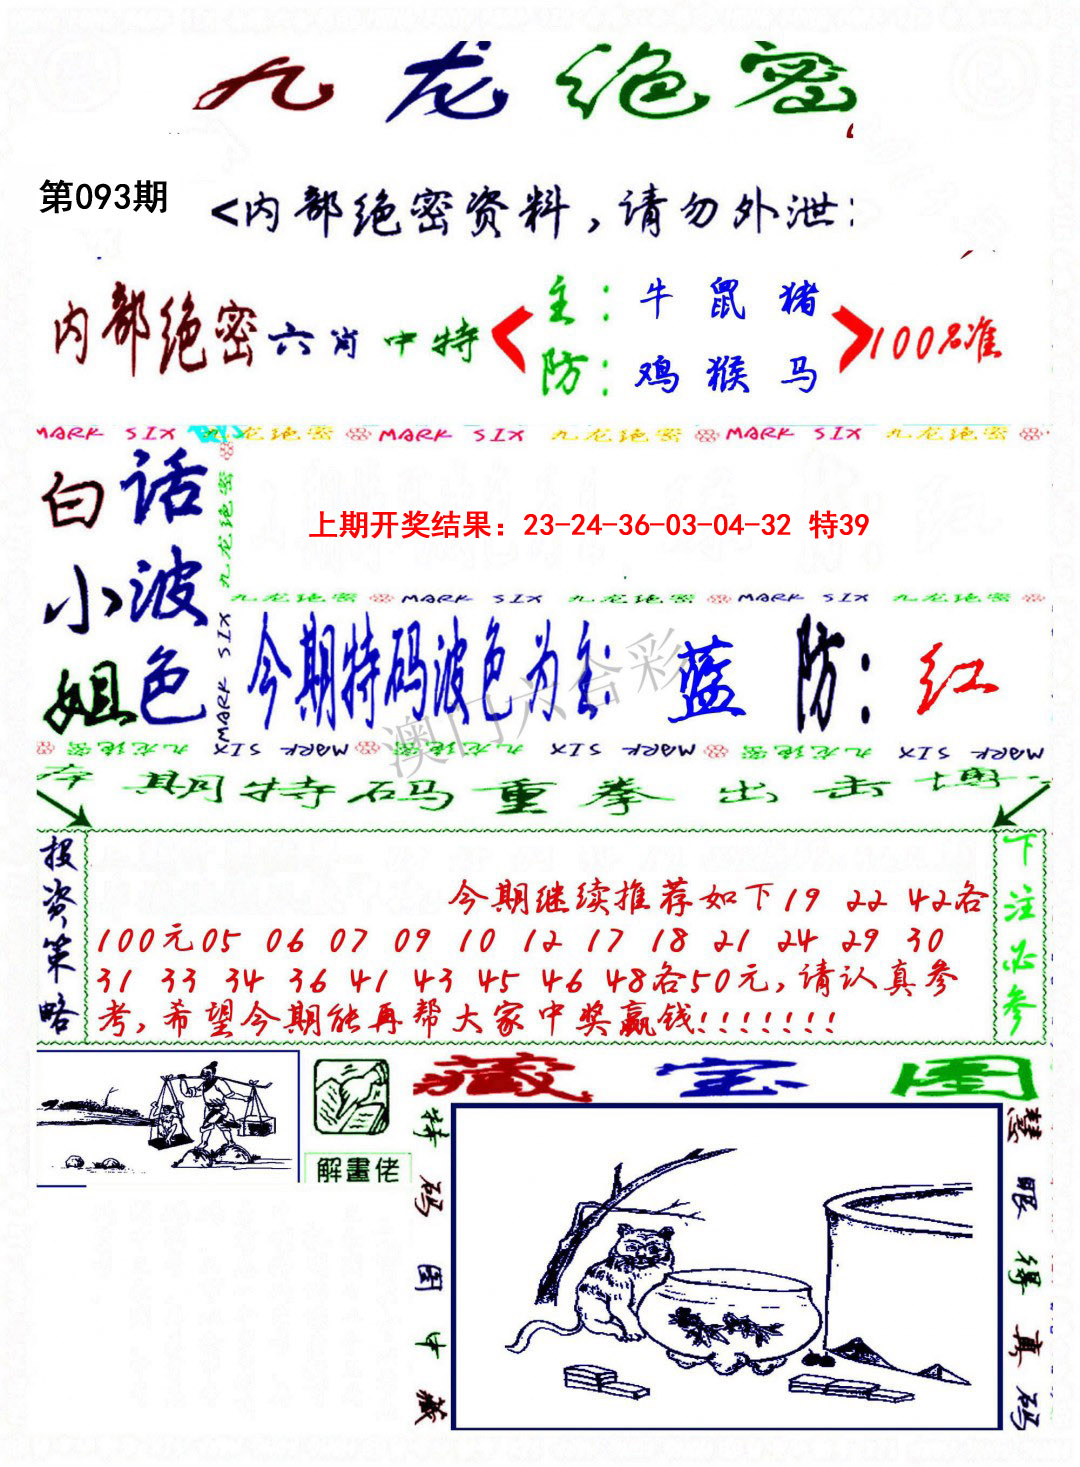 九龙绝密
第093期
<内部绝密资料，请勿外泄:
内部绝密六肖中特
主：牛 鼠 猪
防：鸡 猴 马
100%准
MARK SIX 九龙绝密 MARK SIX 九龙绝密 MARK SIX 九龙绝密
白小姐
话波色
九龙绝密
MARK SIX
上期开奖结果：23-24-36-03-04-32 特39
九龙绝密 MARK SIX 九龙绝密 MARK SIX 九龙绝密
今期特码波色为主：蓝 防：红
澳门六合彩
九龙绝密 MARK SIX 九龙绝密 MARK SIX 九龙绝密 MARK SIX
本期特码重拳出击博
投资策略
今期继续推荐如下19 22 42各
100元05 06 07 09 10 12 17 18 21 24 29 30
31 33 34 36 41 43 45 46 48各50元,请认真参
考,希望今期能再帮大家中奖赢钱!!!!!!!
下注必参
解畫佬
藏宝图
特码图中藏
慧眼得真码